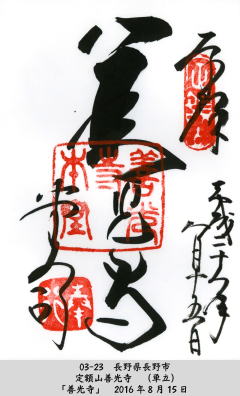 平成二十八年
八月十五日
善光寺
03-23 長野県長野市
定額山善光寺 （単立）
「善光寺」 2016年8月15日